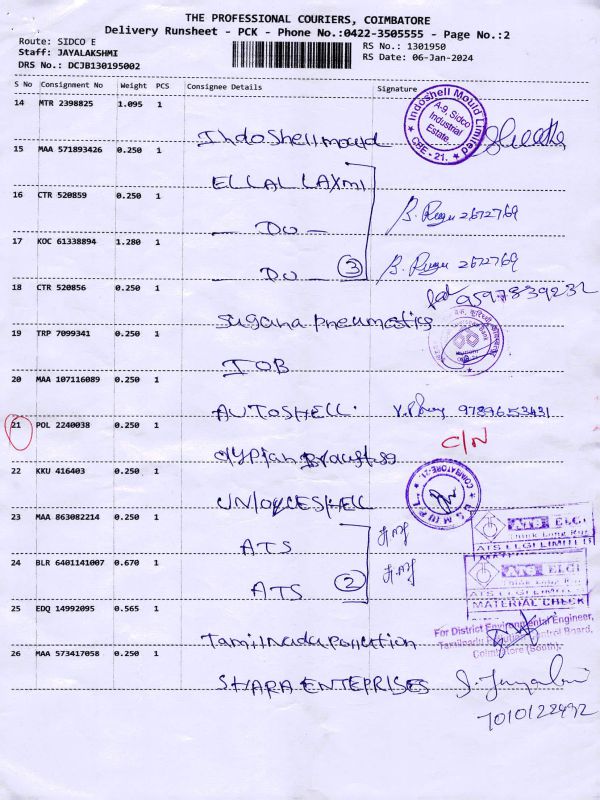 THE PROFESSIONAL COURIERS, COIMBATORE
Delivery Runsheet - PCK - Phone No.:0422-3505555 - Page No.:2
Route: SIDCO E
RS No.: 1301950
Staff: JAYALAKSHMI
RS Date: 06-Jan-2024
DRS No.: DCJB130195002
S No Consignment No Weight PCS Consignee Details Signature
14 MTR 2398825 1.095 1
Indoshell mould
Indoshell Mould Limited
A-9, Sidco
Industrial
Estate
CBE - 21.
15 MAA 571893426 0.250 1
ELLAL LAXMI
16 CTR 520859 0.250 1
- DO -
2672769
17 KOC 61338894 1.280 1
- DO - 3
2672769
18 CTR 520856 0.250 1
9597839232
Sugana pneumatics
19 TRP 7099341 0.250 1
IOB
20 MAA 107116089 0.250 1
AUTOSHELL. 9789653431
21 POL 2240038 0.250 1
C/N
22 KKU 416403 0.250 1
COIMBATORE-21.
23 MAA 863082214 0.250 1
ATS
ATS ELGI
Think Long Run
ATS ELGI LIMITED
24 BLR 6401141007 0.670 1
ATS 2
ATS ELGI
ATS ELGI LIMITED
MATERIAL CHECK
25 EDQ 14992095 0.565 1
Tamilnadu pollution
For District Environmental Engineer,
Tamilnadu Pollution Control Board,
Coimbatore (South).
26 MAA 573417058 0.250 1
SHARA ENTEPRISES
7010122492